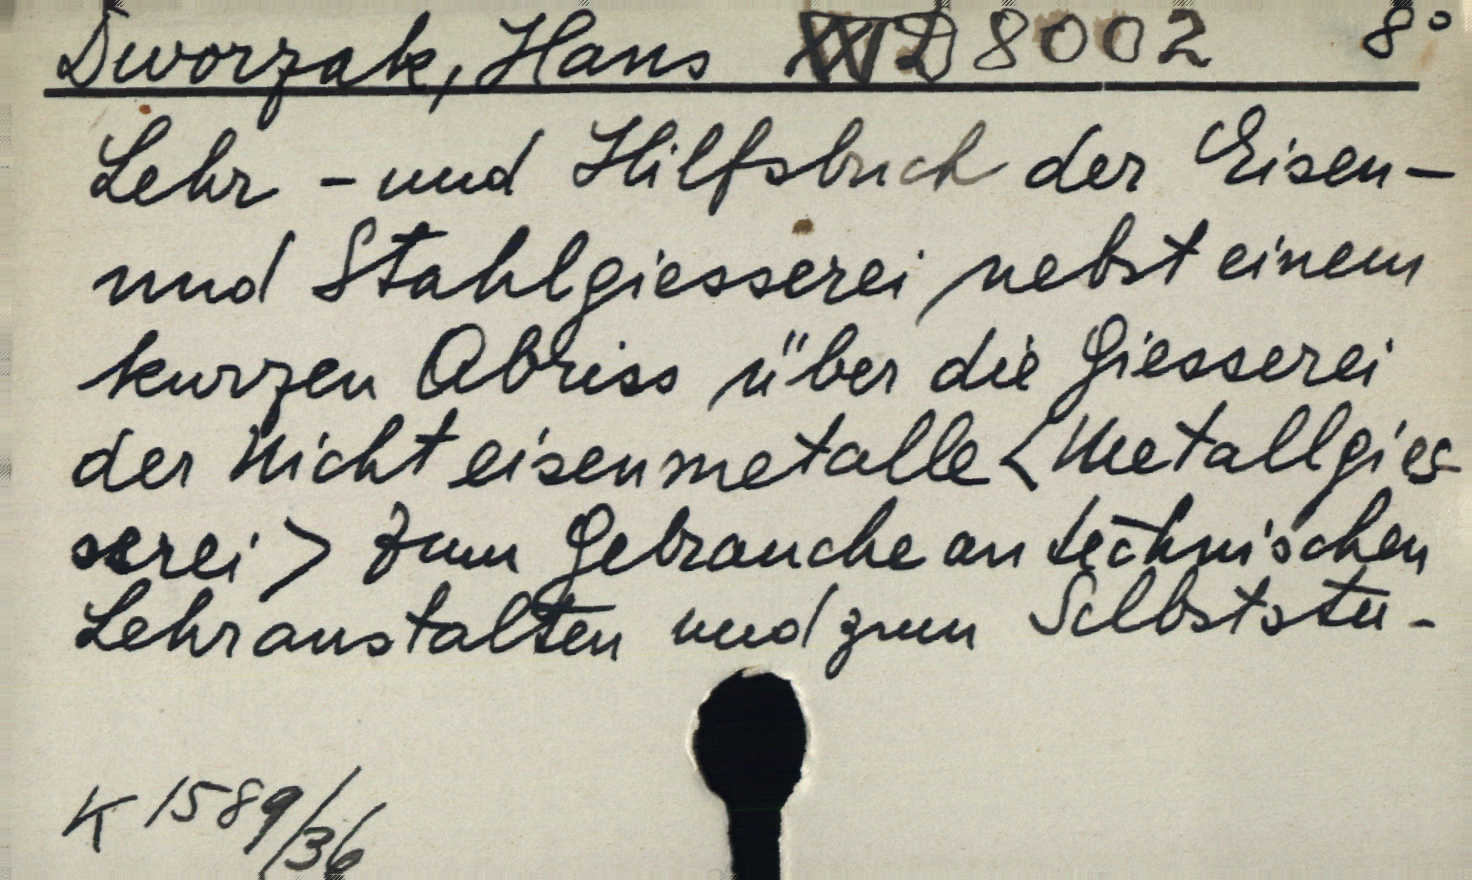 Dworzak, Hans D 8002 8°
Lehr - und Hilfsbuch der Eisen-
und Stahlgiesserei, nebst einem
kurzen Abriss über die Giesserei
der Nichteisenmetalle <Metallgies-
serei> zum Gebrauche an technischen
Lehranstalten und zum Selbststu-
K 1589/36